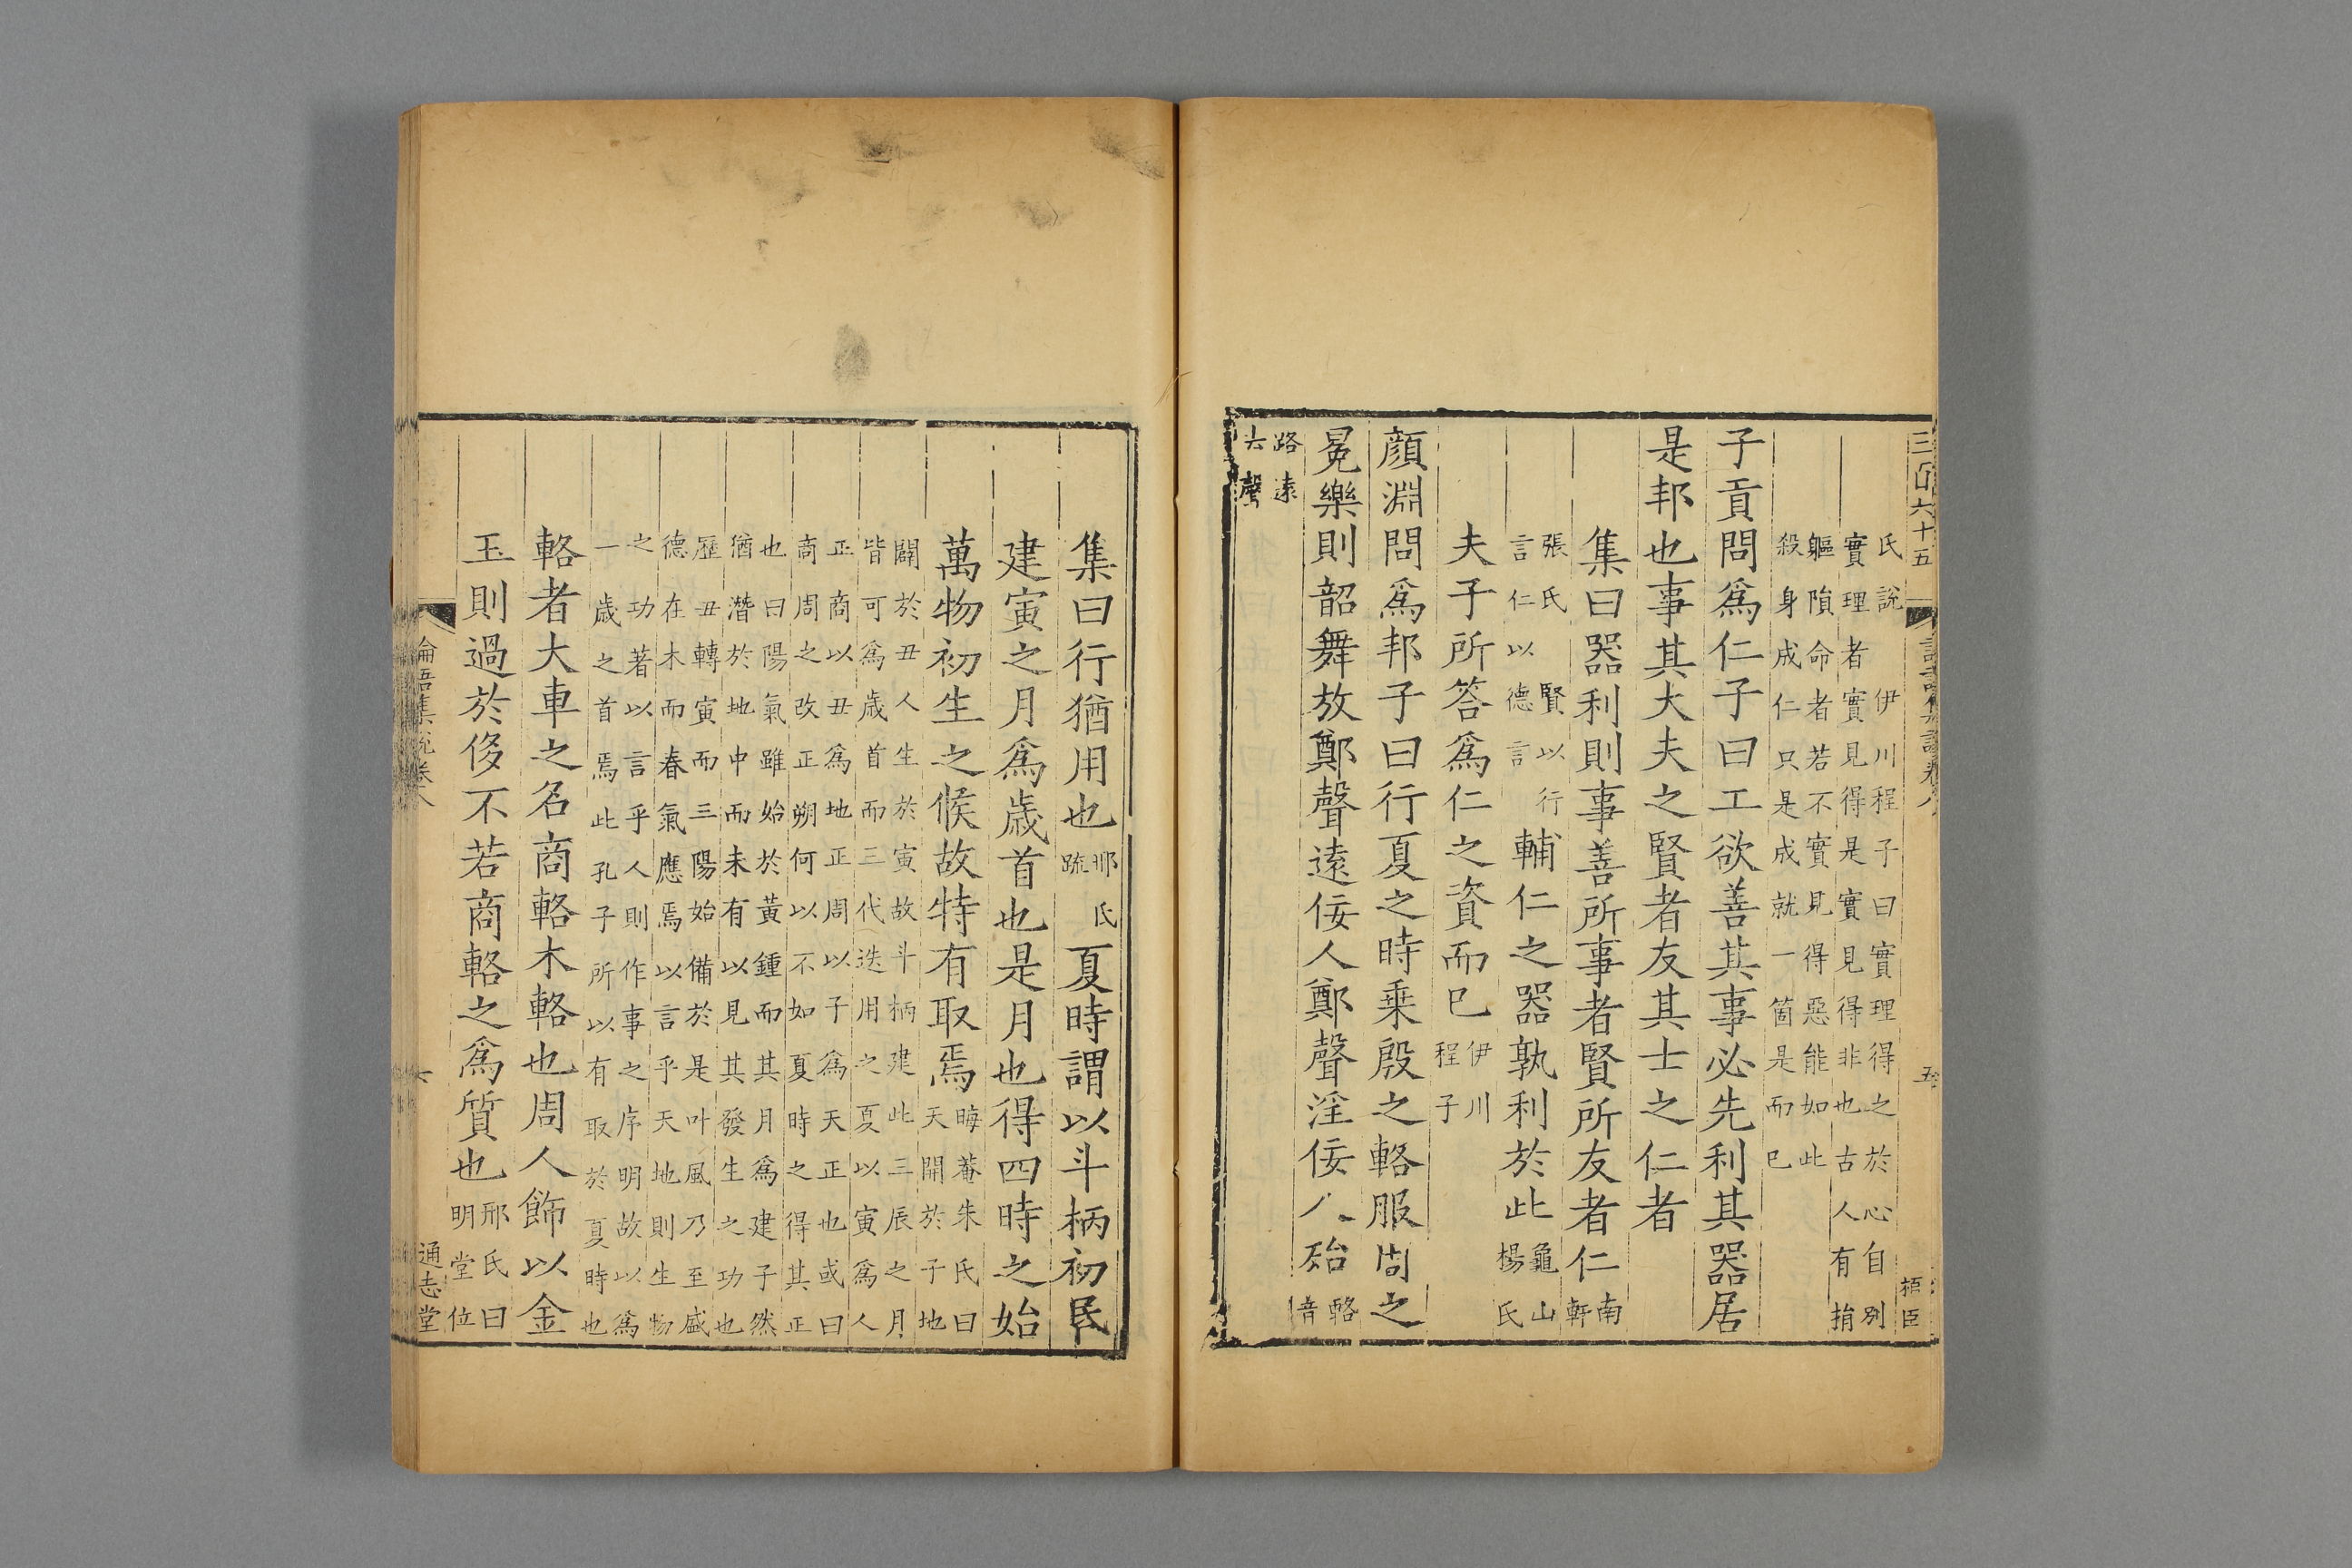 三百六十五
論語集說卷八
五
栢臣
氏說 伊川程子曰實理得之於心自別
實理者實見得是實見得非也古人有捐
軀隕命者若不實見得惡能如此
殺身成仁只是成就一箇是而已
子貢問爲仁子曰工欲善其事必先利其器居
是邦也事其大夫之賢者友其士之仁者
集曰器利則事善所事者賢所友者仁南
軒
張氏 賢以行
言仁以德言
輔仁之器孰利於此龜山
楊氏
夫子所答爲仁之資而已伊川
程子
顔淵問爲邦子曰行夏之時乗殷之輅服周之
冕樂則韶舞放鄭聲遠佞人鄭聲淫佞人殆輅
音
路遠
去聲
集曰行猶用也邢氏
疏
夏時謂以斗柄初昏
建寅之月爲歳首也是月也得四時之始
萬物初生之候故特有取焉晦菴朱氏曰
天開於子地
闢於丑人生於寅故斗柄建此三辰之月
皆可爲歳首而三代迭用之夏以寅爲人
正商以丑爲地正周以子爲天正也或曰
商周之改正朔何以不如夏時之得其正
也曰陽氣雖始於黃鍾而其月爲建子然
猶潛於地中而未有以見其發生之功也
歷丑轉寅而三陽始備於是叶風乃至盛
德在木而春氣應焉以言乎天地則生物
之功著以言乎人則作事之序明故以爲
一歳之首焉此孔子所以有取於夏時也
輅者大車之名商輅木輅也周人飾以金
玉則過於侈不若商輅之爲質也邢氏曰
明堂位
論語集說卷八
六
通志堂